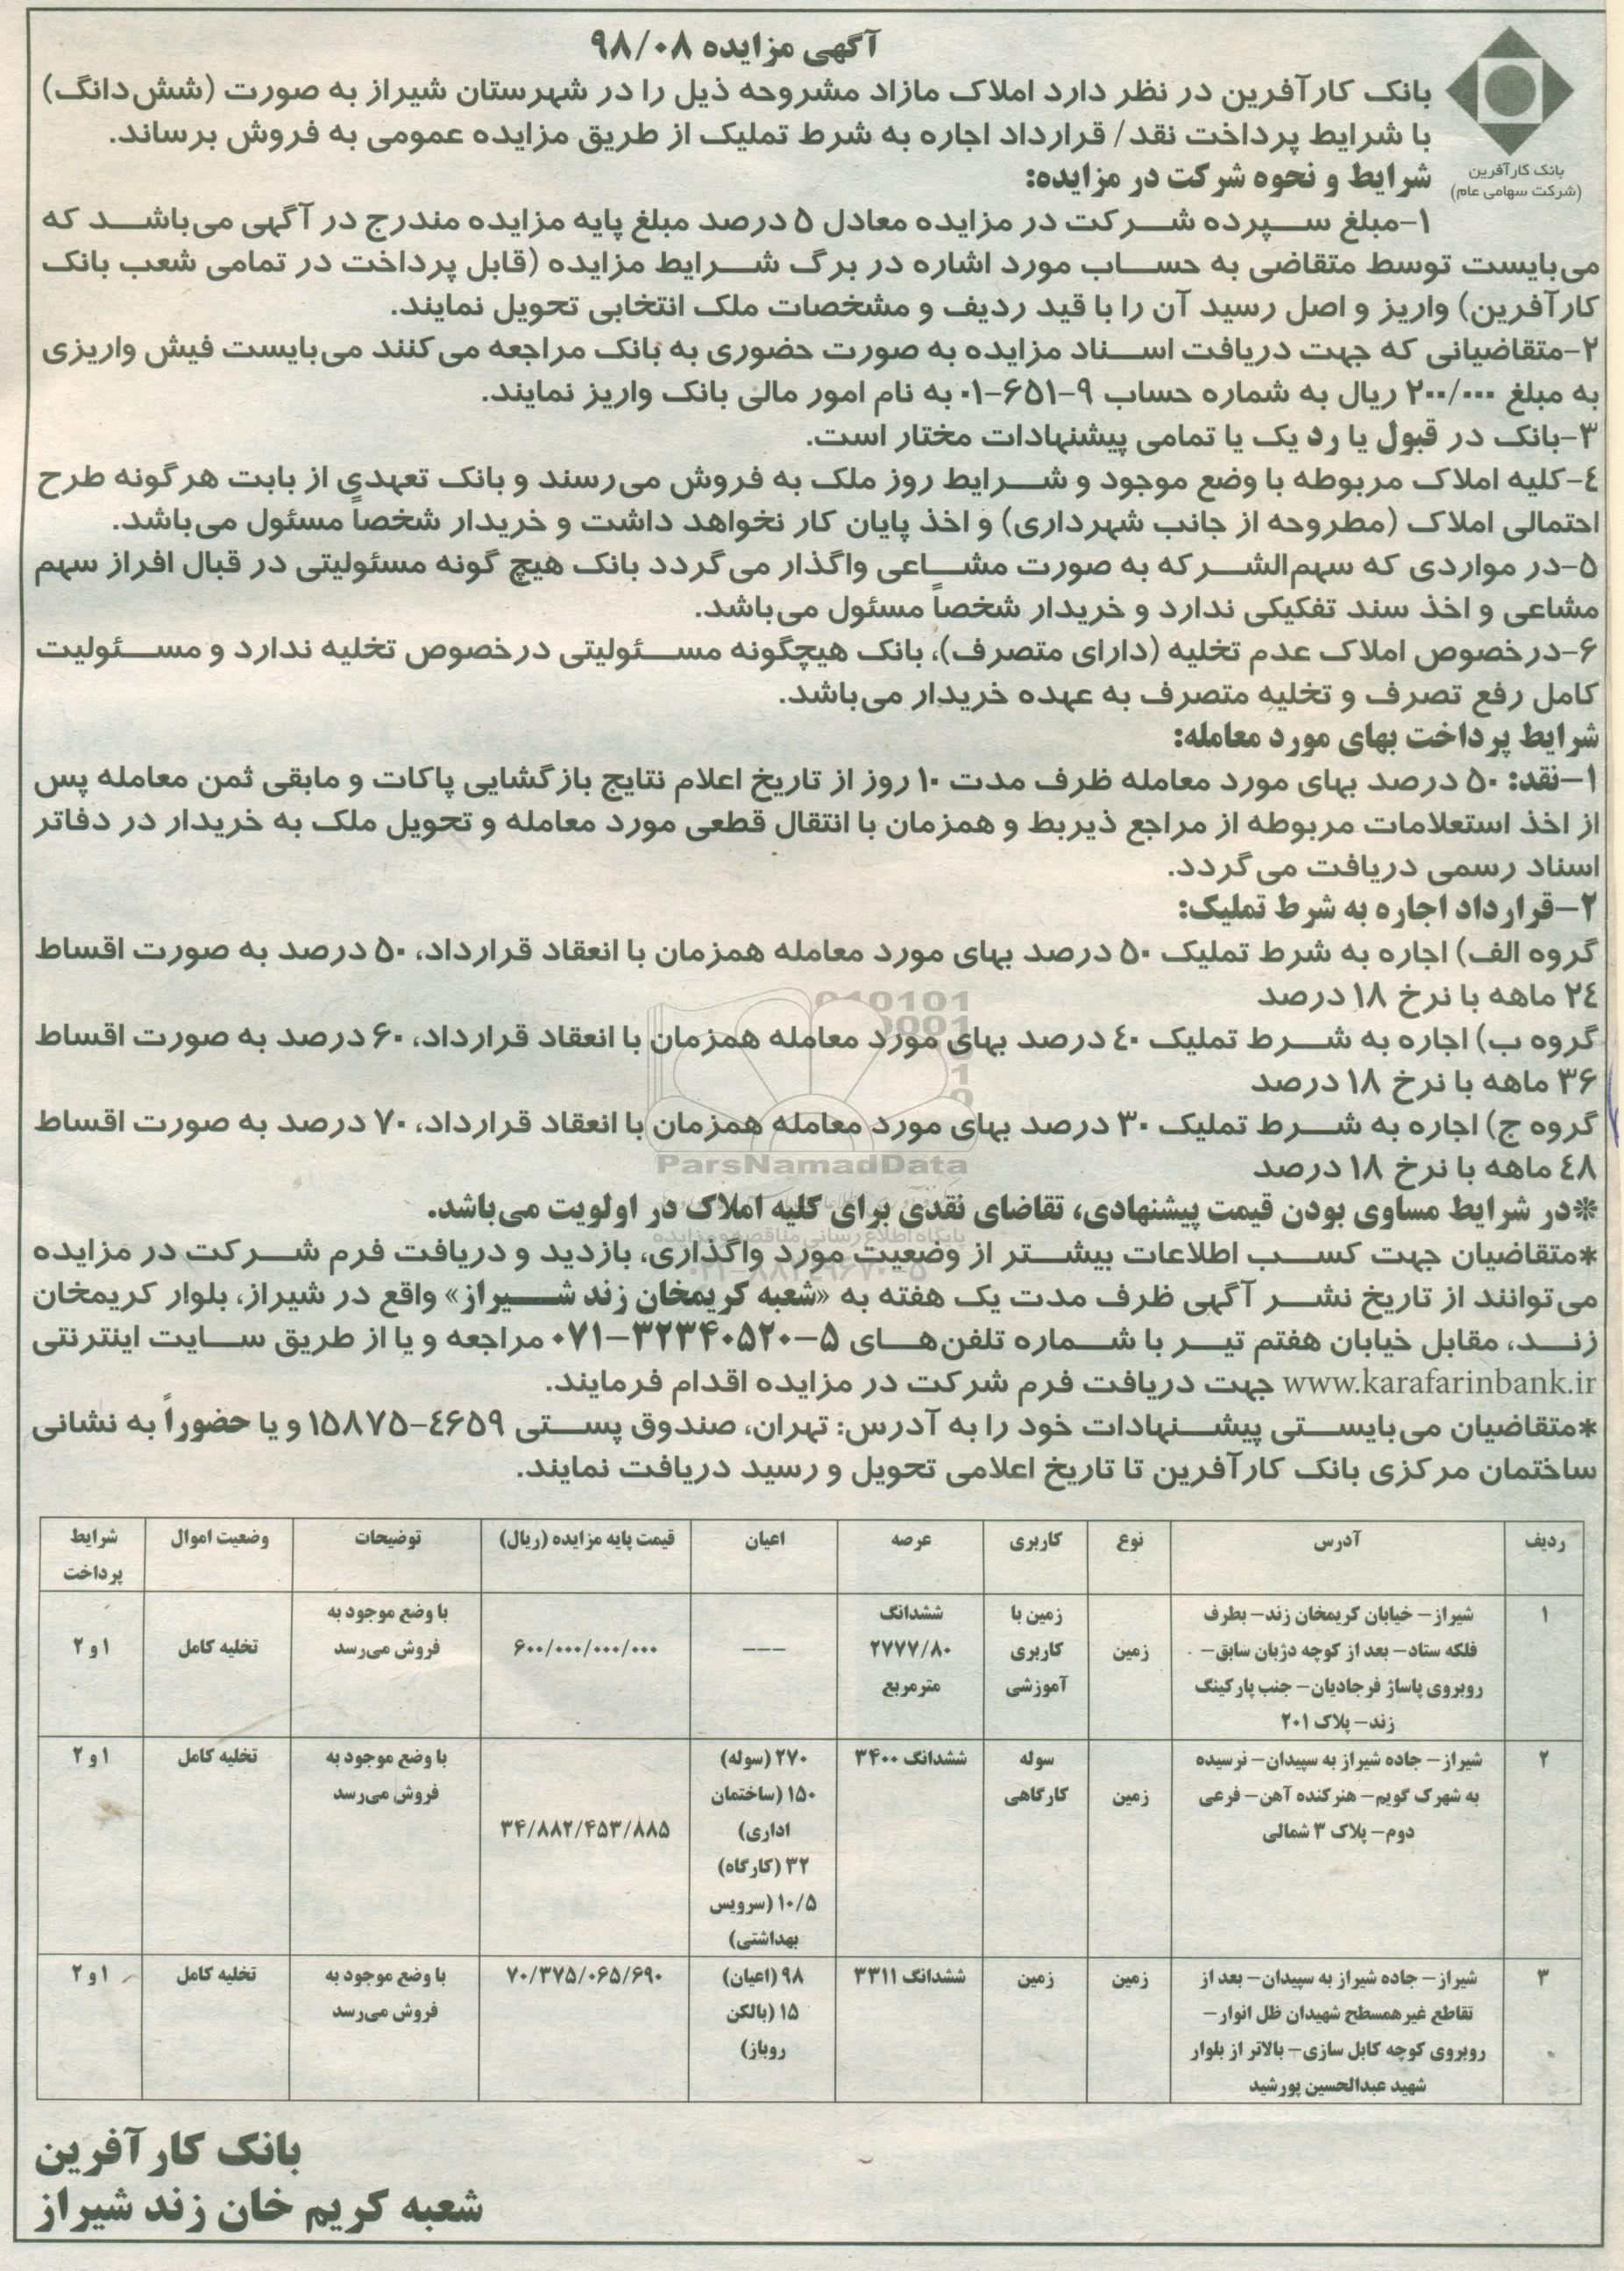 آگهی مزایده ۹۸/۰۸
بانک کارآفرین
(شرکت سهامی عام)
بانک کارآفرین در نظر دارد املاک مازاد مشروحه ذیل را در شهرستان شیراز به صورت (شش‌دانگ)
با شرایط پرداخت نقد/ قرارداد اجاره به شرط تملیک از طریق مزایده عمومی به فروش برساند.
شرایط و نحوه شرکت در مزایده:
۱-مبلغ سپرده شرکت در مزایده معادل ۵ درصد مبلغ پایه مزایده مندرج در آگهی می‌باشد که
می‌بایست توسط متقاضی به حساب مورد اشاره در برگ شرایط مزایده (قابل پرداخت در تمامی شعب بانک
کارآفرین) واریز و اصل رسید آن را با قید ردیف و مشخصات ملک انتخابی تحویل نمایند.
۲-متقاضیانی که جهت دریافت اسناد مزایده به صورت حضوری به بانک مراجعه می‌کنند می‌بایست فیش واریزی
به مبلغ ۲۰۰/۰۰۰ ریال به شماره حساب ۹-۶۵۱-۰۱ به نام امور مالی بانک واریز نمایند.
۳-بانک در قبول یا رد یک یا تمامی پیشنهادات مختار است.
۴-کلیه املاک مربوطه با وضع موجود و شرایط روز ملک به فروش می‌رسند و بانک تعهدی از بابت هرگونه طرح
احتمالی املاک (مطروحه از جانب شهرداری) و اخذ پایان کار نخواهد داشت و خریدار شخصاً مسئول می‌باشد.
۵-در مواردی که سهم‌الشرکه به صورت مشاعی واگذار می‌گردد بانک هیچ گونه مسئولیتی در قبال افراز سهم
مشاعی و اخذ سند تفکیکی ندارد و خریدار شخصاً مسئول می‌باشد.
۶-درخصوص املاک عدم تخلیه (دارای متصرف)، بانک هیچگونه مسئولیتی درخصوص تخلیه ندارد و مسئولیت
کامل رفع تصرف و تخلیه متصرف به عهده خریدار می‌باشد.
شرایط پرداخت بهای مورد معامله:
۱-نقد: ۵۰ درصد بهای مورد معامله ظرف مدت ۱۰ روز از تاریخ اعلام نتایج بازگشایی پاکات و مابقی ثمن معامله پس
از اخذ استعلامات مربوطه از مراجع ذیربط و همزمان با انتقال قطعی مورد معامله و تحویل ملک به خریدار در دفاتر
اسناد رسمی دریافت می‌گردد.
۲-قرارداد اجاره به شرط تملیک:
گروه الف) اجاره به شرط تملیک ۵۰ درصد بهای مورد معامله همزمان با انعقاد قرارداد، ۵۰ درصد به صورت اقساط
۲۴ ماهه با نرخ ۱۸ درصد
گروه ب) اجاره به شرط تملیک ۴۰ درصد بهای مورد معامله همزمان با انعقاد قرارداد، ۶۰ درصد به صورت اقساط
۳۶ ماهه با نرخ ۱۸ درصد
گروه ج) اجاره به شرط تملیک ۳۰ درصد بهای مورد معامله همزمان با انعقاد قرارداد، ۷۰ درصد به صورت اقساط
۴۸ ماهه با نرخ ۱۸ درصد
ParsNamadData
پایگاه اطلاع رسانی مناقصه و مزایده
*در شرایط مساوی بودن قیمت پیشنهادی، تقاضای نقدی برای کلیه املاک در اولویت می‌باشد.
*متقاضیان جهت کسب اطلاعات بیشتر از وضعیت مورد واگذاری، بازدید و دریافت فرم شرکت در مزایده
می‌توانند از تاریخ نشر آگهی ظرف مدت یک هفته به «شعبه کریمخان زند شیراز» واقع در شیراز، بلوار کریمخان
زند، مقابل خیابان هفتم تیر با شماره تلفن‌های ۵-۳۲۳۴۰۵۲۰-۰۷۱ مراجعه و یا از طریق سایت اینترنتی
www.karafarinbank.ir جهت دریافت فرم شرکت در مزایده اقدام فرمایند.
*متقاضیان می‌بایستی پیشنهادات خود را به آدرس: تهران، صندوق پستی ۴۶۵۹-۱۵۸۷۵ و یا حضوراً به نشانی
ساختمان مرکزی بانک کارآفرین تا تاریخ اعلامی تحویل و رسید دریافت نمایند.
ردیف آدرس نوع کاربری عرصه اعیان قیمت پایه مزایده (ریال) توضیحات وضعیت اموال شرایط
پرداخت
۱ شیراز- خیابان کریمخان زند- بطرف زمین با ششدانگ با وضع موجود به
فلکه ستاد- بعد از کوچه دژبان سابق- زمین کاربری ۲۷۷۷/۸۰ --- ۶۰۰/۰۰۰/۰۰۰/۰۰۰ فروش می‌رسد تخلیه کامل ۱ و ۲
روبروی پاساژ فرجادیان- جنب پارکینگ آموزشی مترمربع
زند- پلاک ۲۰۱
۲ شیراز- جاده شیراز به سپیدان- نرسیده سوله ششدانگ ۳۴۰۰ ۲۷۰ (سوله) با وضع موجود به تخلیه کامل ۱ و ۲
به شهرک گویم- هنرکده آهن- فرعی زمین کارگاهی ۱۵۰ (ساختمان فروش می‌رسد
دوم- پلاک ۳ شمالی اداری) ۳۴/۸۸۲/۴۵۳/۸۸۵
۳۲ (کارگاه)
۱۰/۵ (سرویس
بهداشتی)
۳ شیراز- جاده شیراز به سپیدان- بعد از زمین زمین ششدانگ ۳۳۱۱ ۹۸ (اعیان) ۷۰/۳۷۵/۰۶۵/۶۹۰ با وضع موجود به تخلیه کامل ۱ و ۲
تقاطع غیرهمسطح شهیدان ظل انوار- ۱۵ (بالکن فروش می‌رسد
روبروی کوچه کابل سازی- بالاتر از بلوار روباز)
شهید عبدالحسین پورشید
بانک کارآفرین
شعبه کریم خان زند شیراز